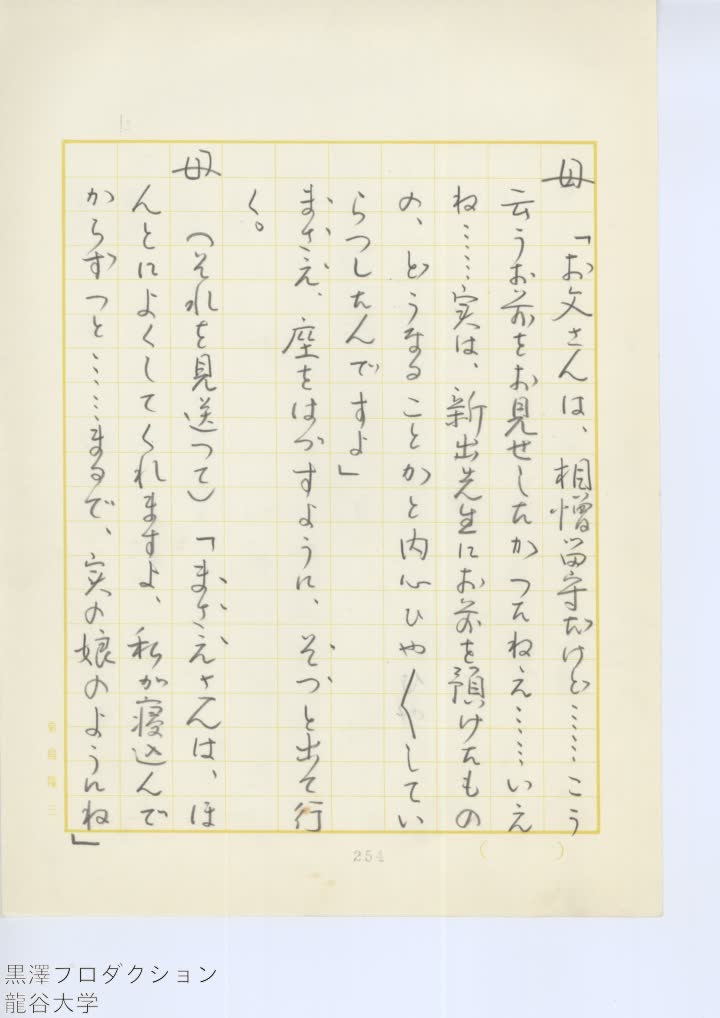 母「お父さんは、相憎留守だけど……こう
云うお前をお見せしたかつたねえ……いえ
ね……実は、新出先生にお前を預けたもの
の、どうなることかと内心ひや〱してい
らつしたんですよ」
まさえ、座をはづすように、そつと出て行
く。
母（それを見送つて）「まさえさんは、ほ
んとによくしてくれますよ、私が寝込んで
からずつと……まるで、実の娘のようにね」
254
(　　)
黒澤プロダクション
龍谷大学